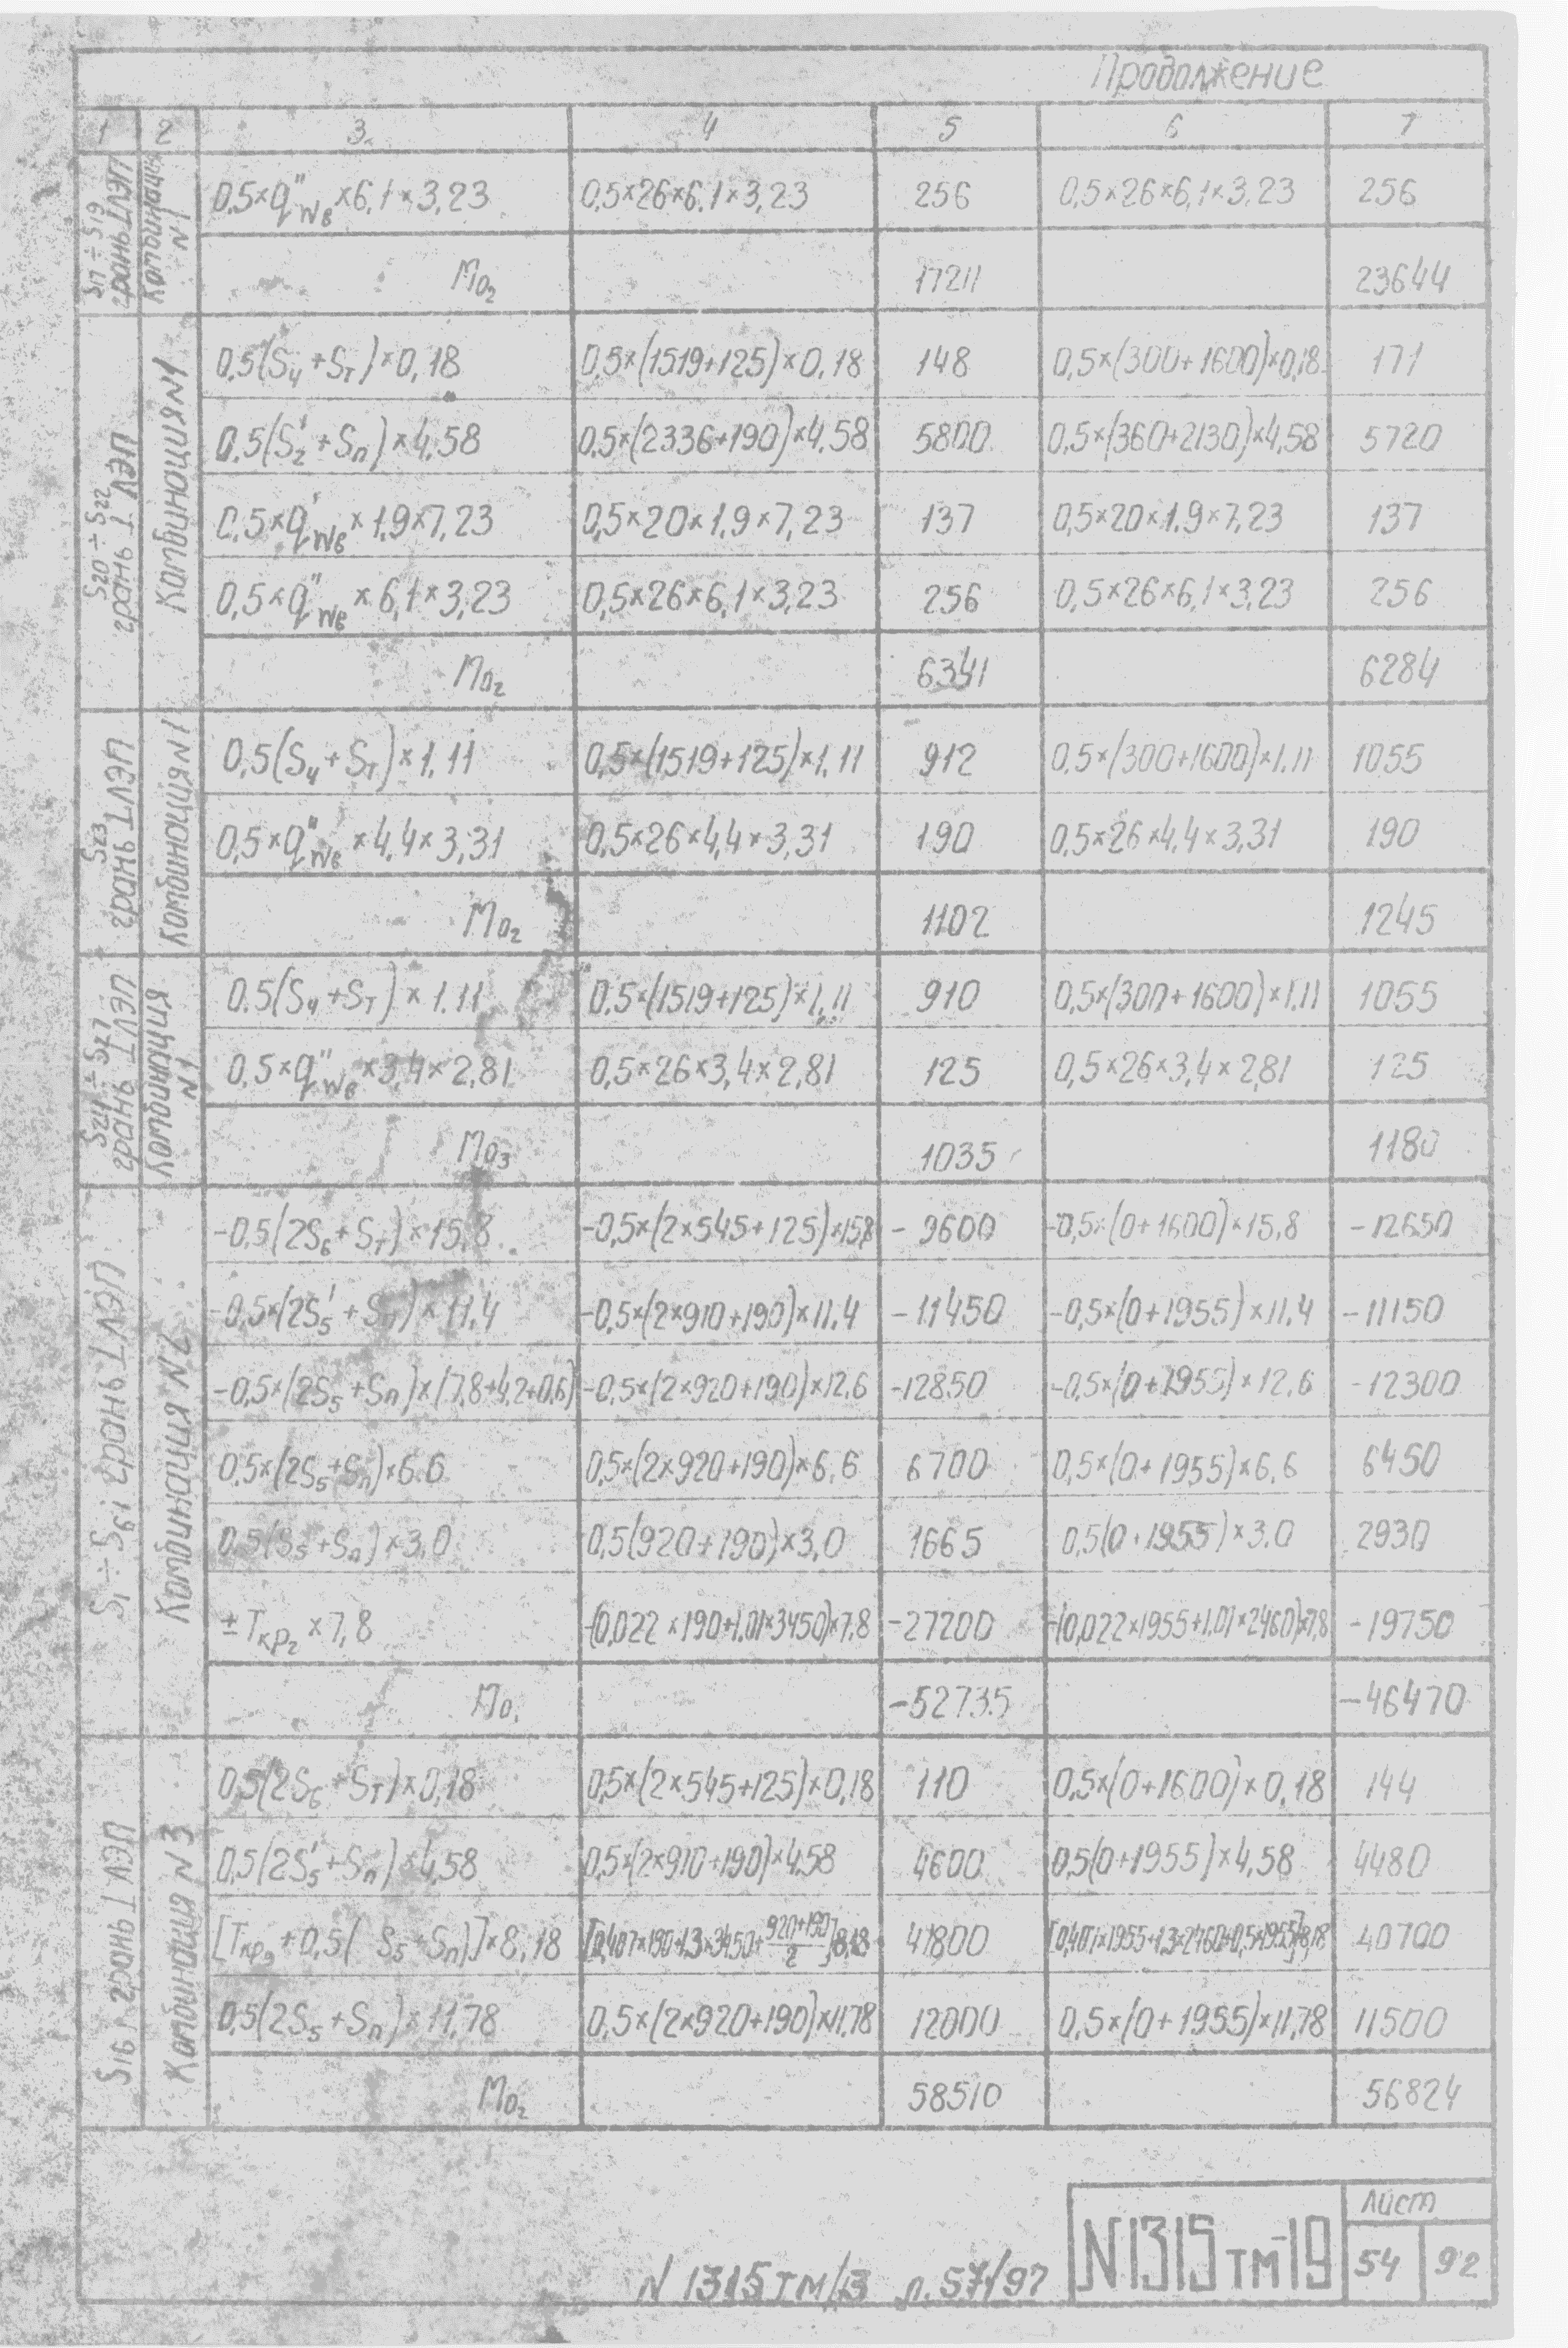 Продолжение
1 2 3 4 5 6 7
S17 ÷ S19 грань Т ЛЭП
Комбинация N1
0,5×q"wв ×6,1×3,23 0,5×26×6,1×3,23 256 0,5×26×6,1×3,23 256
Mo2 17211 23644
S20 ÷ S22 грань Т ЛЭП
Комбинация N1
0,5(S4+Sт)×0,18 0,5×(1519+125)×0,18 148 0,5×(300+1600)×0,18 171
0.5(S'2+Sп)×4,58 0,5×(2336+190)×4,58 5800 0,5×(360+2130)×4,58 5720
0,5×q'wв×1,9×7,23 0,5×20×1,9×7,23 137 0,5×20×1,9×7,23 137
0,5×q"wв×6,1×3,23 0,5×26×6,1×3,23 256 0,5×26×6,1×3,23 256
Mo2 6341 6284
S23 грань Т ЛЭП
Комбинация N1
0,5(S4+Sт)×1,11 0,5×(1519+125)×1,11 912 0,5×(300+1600)×1,11 1055
0,5×q"wв×4,4×3,31 0,5×26×4,4×3,31 190 0,5×26×4,4×3,31 190
Mo2 1102 1245
S24 ÷ S27 грань Т ЛЭП
Комбинация N1
0.5(S4+Sт)×1.11 0,5×(1519+125)×1,11 910 0,5×(300+1600)×1,11 1055
0,5×q"wв×3,4×2,81 0,5×26×3,4×2,81 125 0,5×26×3,4×2,81 125
Mo3 1035 1180
S1 ÷ S6; грань Т ЛЭП
Комбинация N2
-0.5(2S6+Sт)×15,8 -0,5×(2×545+125)×15,8 -9600 -0,5×(0+1600)×15,8 -12650
-0,5×(2S'5+Sп)×11,4 -0,5×(2×910+190)×11,4 -11450 -0,5×(0+1955)×11,4 -11150
-0,5×(2S5+Sп)×(7,8+4,2+0,6) -0,5×(2×920+190)×12,6 -12850 -0,5×(0+1955)×12,6 -12300
0,5×(2S5+Sп)×6.6 0,5×(2×920+190)×6,6 6700 0,5×(0+1955)×6,6 6450
0,5(S5+Sп)×3,0 0,5(920+190)×3,0 1665 0,5(0+1955)×3,0 2930
±Tкр2×7,8 -(0,022×190+1,01×3450)×7,8 -27200 -(0,022×1955+1,01×2460)×7,8 -19750
Mo1 -52735 -46470
S16; грань Т ЛЭП
Комбинация N3
0,5(2S6+Sт)×0,18 0,5×(2×545+125)×0,18 110 0,5×(0+1600)×0,18 144
0,5(2S'5+Sп)×4,58 0,5×(2×910+190)×4,58 4600 0,5(0+1955)×4,58 4480
[Tкр3+0,5(S5+Sп)]×8,18 [0,407×190+1,3×3450+920+190/2]8,18 41800 [0,407×1955+1,3×2460+0,5×1955]8,18 40700
0,5(2S5+Sп)×11,78 0,5×(2×920+190)×11,78 12000 0,5×(0+1955)×11,78 11500
Mo2 58510 56824
N 1315тм/3 л.57/97
N1315тм-19
Лист
54 92